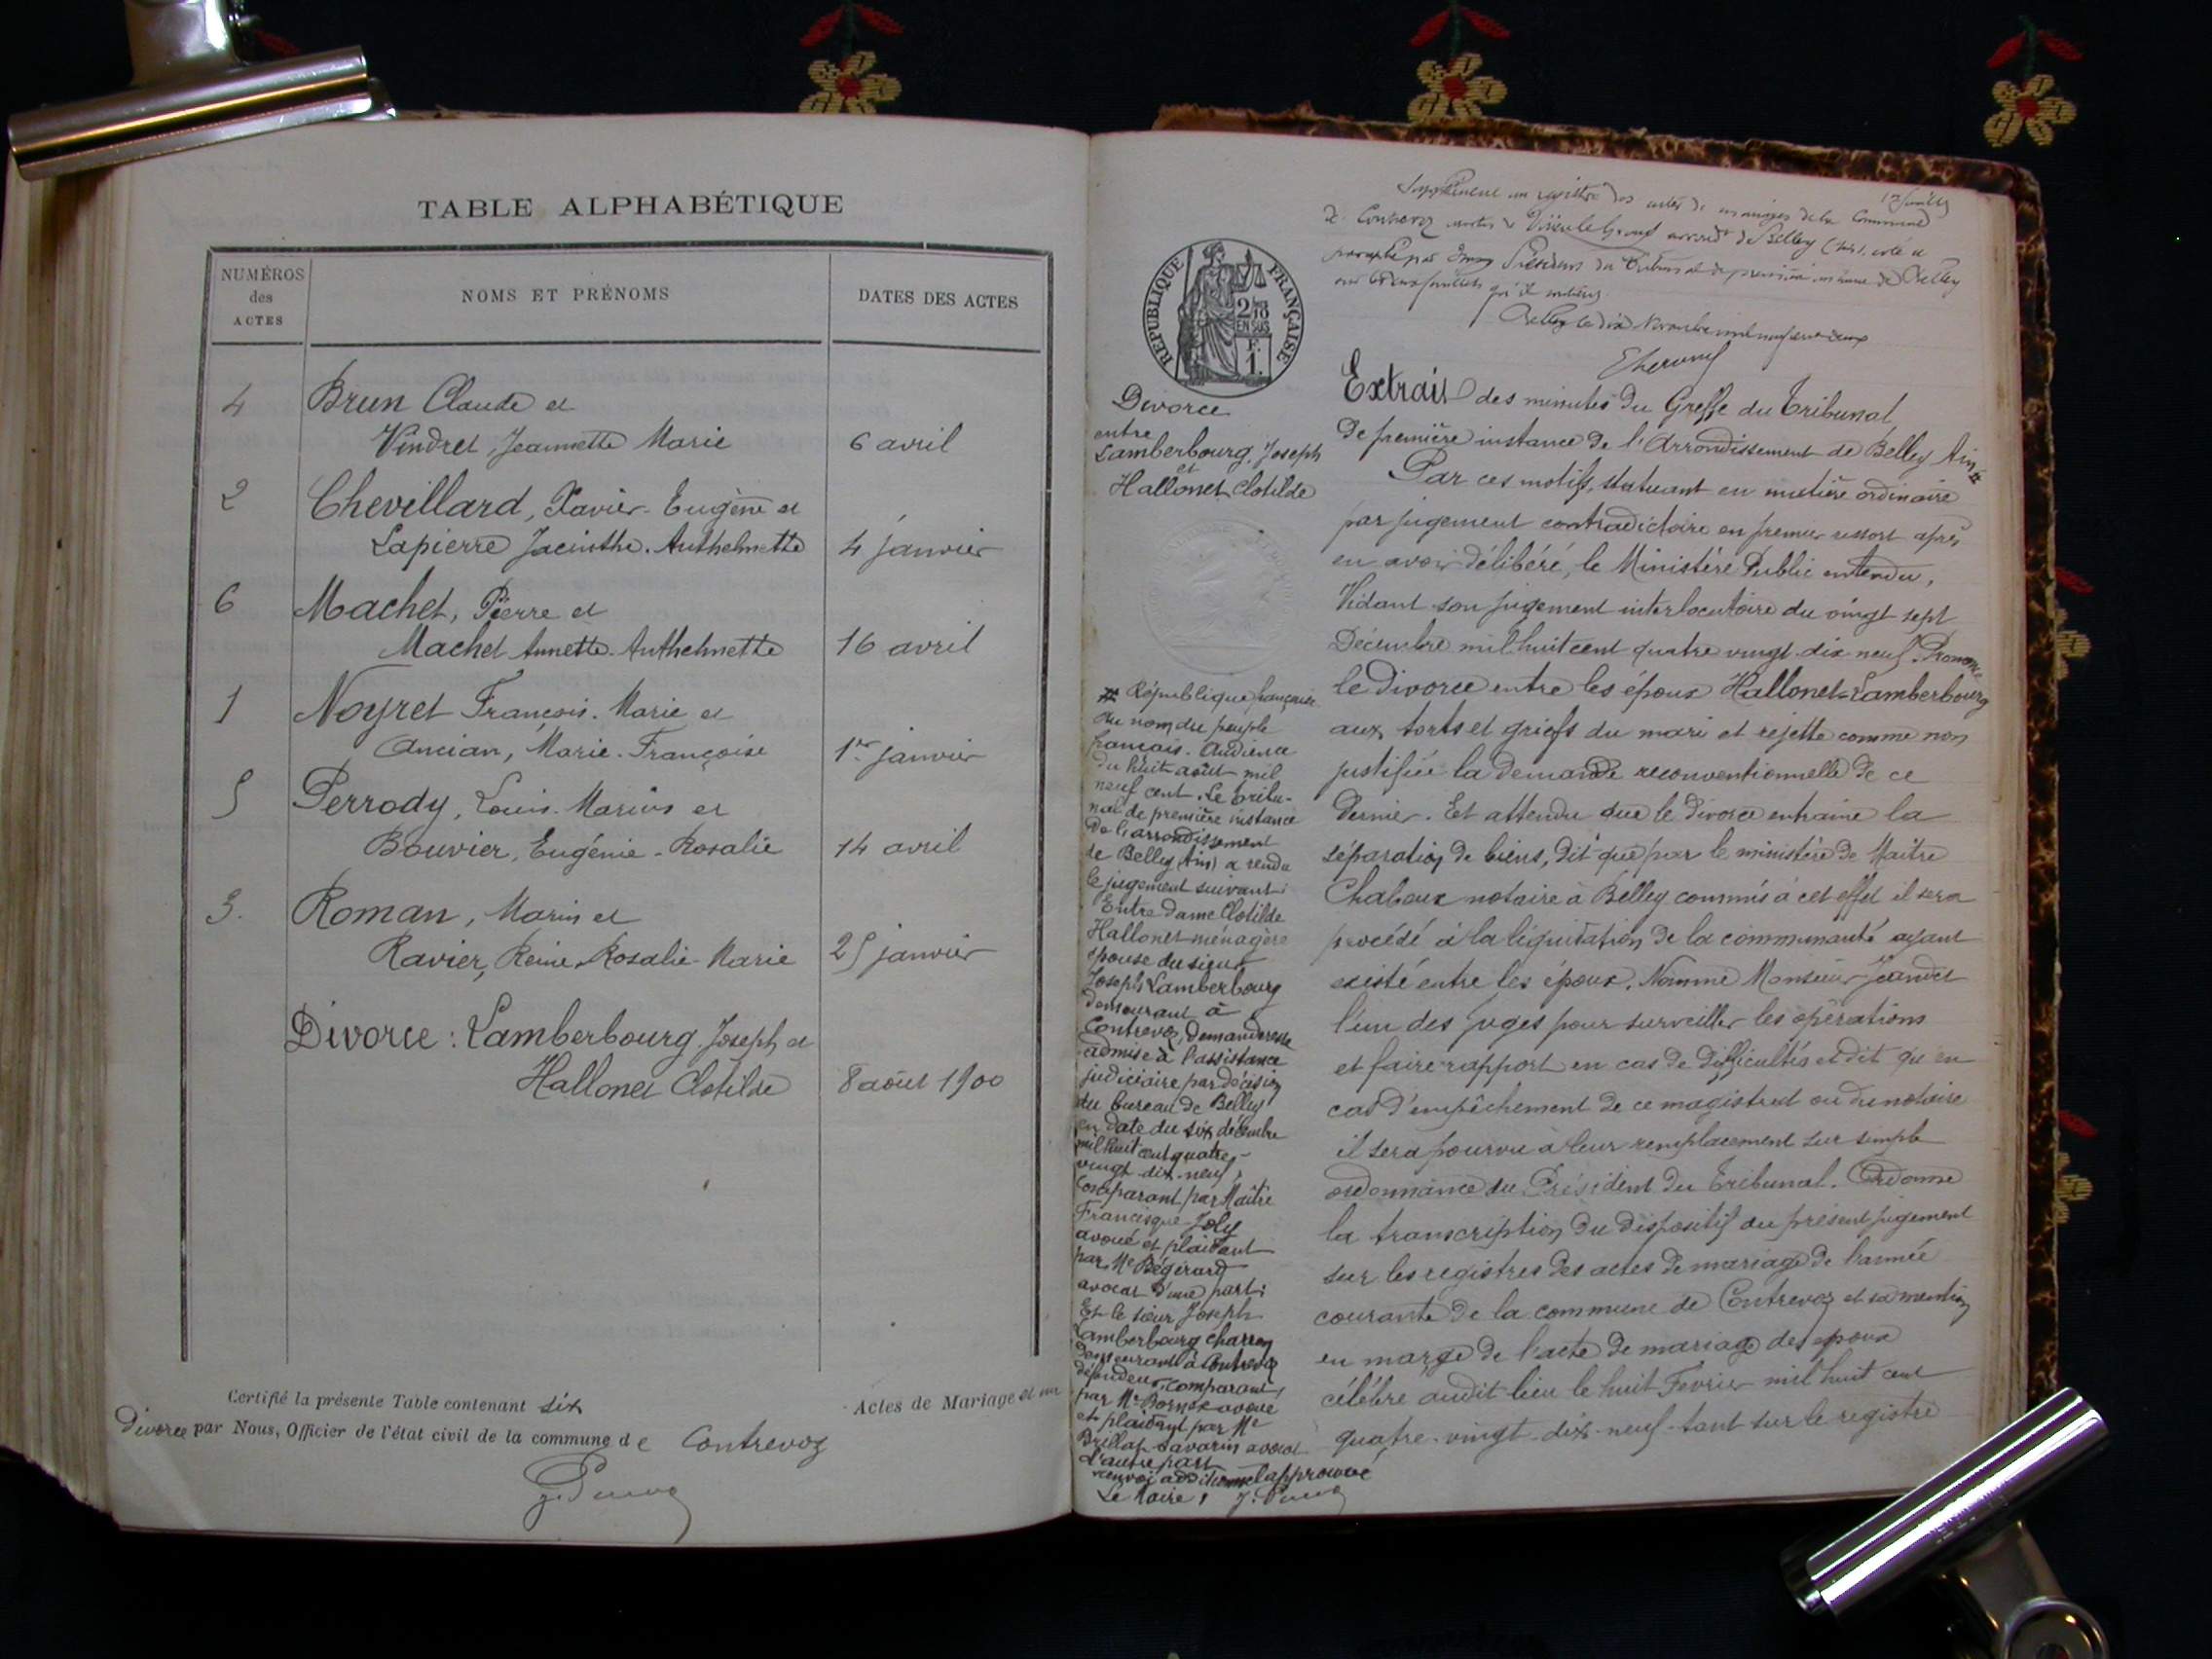 TABLE ALPHABÉTIQUE
NUMÉROS
des
ACTES
NOMS ET PRÉNOMS
DATES DES ACTES
4 Brun Claude et
Vindret, Jeannette Marie 6 avril
2 Chevillard, Xavier-Eugène et
Lapierre Jacinthe. Anthelmette 4 janvier
6 Machet, Pierre et
Machet Annette. Anthelmette 16 avril
1 Noyret François. Marie et
Ancian, Marie. Françoise 1er janvier
5 Perrody, Louis. Marius et
Bouvier, Eugénie-Rosalie 14 avril
3. Roman, Marin et
Ravier, Reine, Rosalie-Marie 25 janvier
Divorce : Lamberbourg. Joseph et
Hallonet Clotilde 8 août 1900
Certifié la présente Table contenant six Actes de Mariage et un
divorce par Nous, Officier de l'état civil de la commune de Contrevoz
RÉPUBLIQUE FRANÇAISE
2/10
EN SUS
F.
1.
Supplément au registre des actes de mariages de la Commune
de Contrevoz
Président du Tribunal de première instance de Belley
Extrait des minutes du Greffe du Tribunal
de première instance de l'Arrondissement de Belley Ain #
Par ces motifs, statuant en matière ordinaire
par jugement contradictoire en premier ressort après
en avoir délibéré, le Ministère Public entendu,
Vidant son jugement interlocutoire du vingt sept
Décembre mil huit cent quatre vingt dix neuf. Prononce
le divorce entre les époux Hallonet-Lamberbourg
aux torts et griefs du mari et rejette comme non
justifiée la demande reconventionnelle de ce
dernier. Et attendu que le divorce entraine la
séparation de biens, dit que par le ministère de Maître
Chabeux notaire à Belley commis à cet effet il sera
procédé à la liquidation de la communauté ayant
existé entre les époux. Nomme Monsieur Jeandet
l'un des juges pour surveiller les opérations
et faire rapport en cas de difficultés et dit qu'en
cas d'empêchement de ce magistrat ou du notaire
il sera pourvu à leur remplacement sur simple
ordonnance du Président du Tribunal. Ordonne
la transcription du dispositif du présent jugement
sur les registres des actes de mariage de l'année
courante de la commune de Contrevoz et sa mention
en marge de l'acte de mariage des époux
célébré audit lieu le huit Fevrier mil huit cent
quatre-vingt-dix-neuf-tant sur le registre
Divorce
entre
Lamberbourg, Joseph
et
Hallonet Clotilde
# République française
Au nom du peuple
français. Audience
du huit août mil
neuf cent. Le tribu-
nal de première instance
de l'arrondissement
de Belley (Ain) a rendu
le jugement suivant :
Entre dame Clotilde
Hallonet ménagère
épouse du sieur
Joseph Lamberbourg
demeurant à
Contrevoz, demanderesse
admise à l'assistance
judiciaire par décision
du bureau de Belley
en date du six décembre
mil huit cent quatre-
vingt-dix-neuf,
Comparant par Maître
Francisque Joly
avoué et plaidant
par Me Bégérard
avocat d'une part ;
Et le sieur Joseph
Lamberbourg charron
demeurant à Contrevoz
défendeur, comparant
par Me Bornet avoué
et plaidant par Me
Brillat-Savarin avocat
d'autre part
renvoi additionnel approuvé
Le Maire,